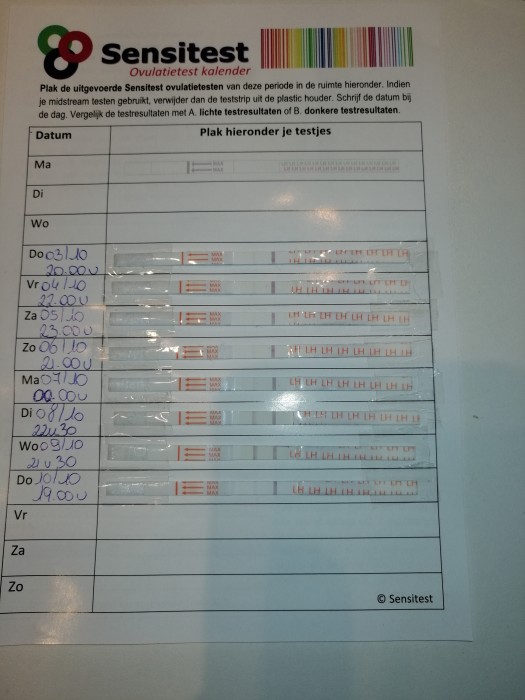 Sensitest
Ovulatietest kalender
Plak de uitgevoerde Sensitest ovulatietesten van deze periode in de ruimte hieronder. Indien
je midstream testen gebruikt, verwijder dan de teststrip uit de plastic houder. Schrijf de datum bij
de dag. Vergelijk de testresultaten met A. lichte testresultaten of B. donkere testresultaten.
Datum Plak hieronder je testjes
Ma MAX
MAX
Di
Wo
Do 03/10 MAX LH LH LH LH LH
20.00u MAX
Vr 04/10 MAX
22.00u MAX LH LH LH
Za 05/10 MAX LH LH LH LH LH LH LH
23.00u MAX
Zo 06/10 MAX LH LH LH LH LH LH
21.00u MAX
Ma 07/10 MAX LH LH LH LH LH LH LH
00.00u MAX
Di 08/10 MAX LH LH LH LH LH LH
22u30 MAX
Wo 09/10 MAX
21u30 MAX LH LH LH
Do 10/10 MAX
19.00u MAX LH LH LH
Vr
Za
Zo
© Sensitest